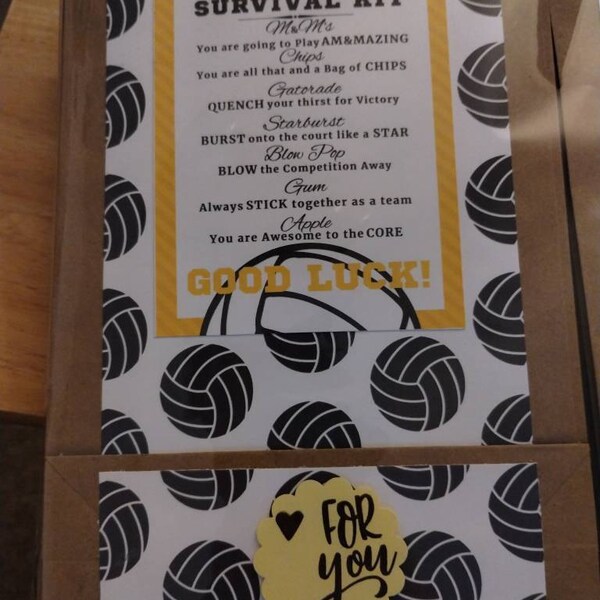 SURVIVAL KIT
M&M's
You are going to Play AM&MAZING
Chips
You are all that and a Bag of CHIPS
Gatorade
QUENCH your thirst for Victory
Starburst
BURST onto the court like a STAR
Blow Pop
BLOW the Competition Away
Gum
Always STICK together as a team
Apple
You are Awesome to the CORE
GOOD LUCK!
FOR
you